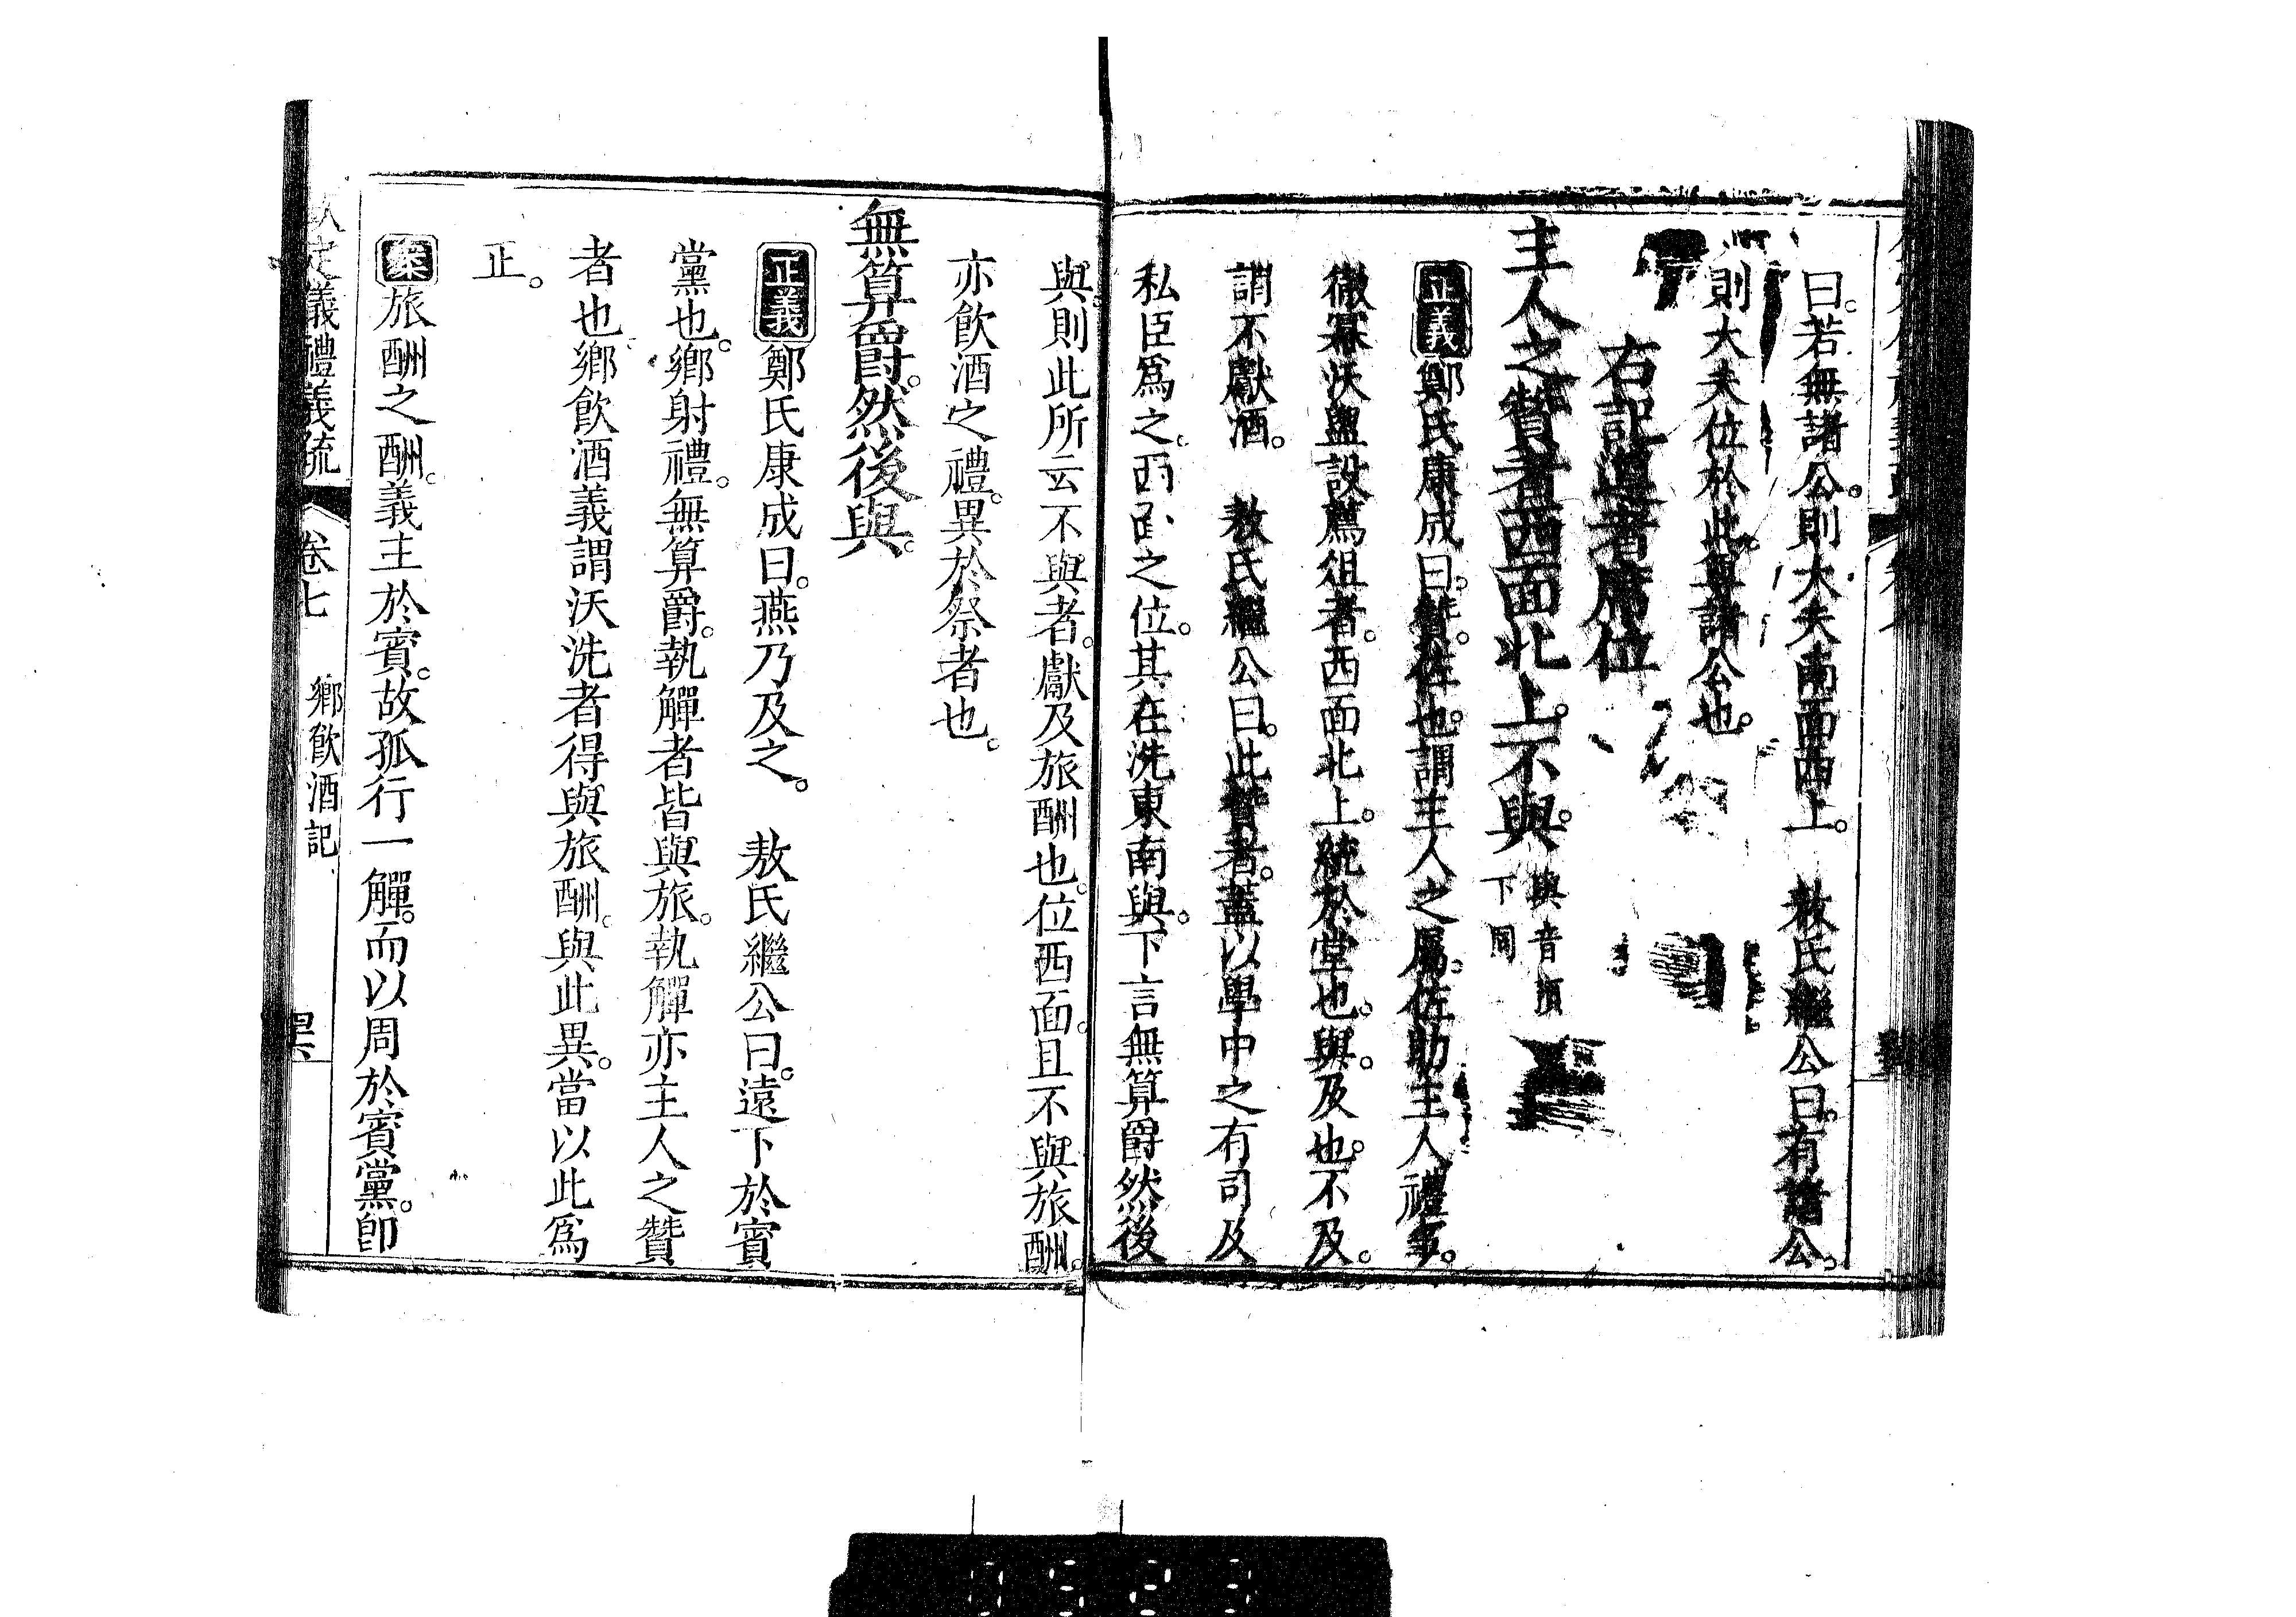 曰。若無諸公。則大夫南面西上。　敖氏繼公曰。有諸公。
則大夫位於此。尊諸公也。
右記遵者席位
主人之贊者西面北上。不與。與音預下同
正義鄭氏康成曰。贊。佐也。謂主人之屬。佐助主人禮事。
徹冪沃盥設薦俎者。西面北上。統於堂也。與。及也。不及。
謂不獻酒。　敖氏繼公曰。此贊者。蓋以學中之有司及
私臣爲之。西面之位。其在洗東南與。下言無算爵然後
與。則此所云不與者。獻及旅酬也。位西面。且不與旅酬。
亦飲酒之禮。異於祭者也。
無算爵。然後與。
正義鄭氏康成曰。燕乃及之。　敖氏繼公曰。遠下於賓
黨也。鄉射禮。無算爵。執觶者皆與旅。執觶亦主人之贊
者也。鄉飲酒義謂沃洗者得與旅酬。與此異。當以此爲
正。
案旅酬之酬。義主於賓。故孤行一觶。而以周於賓黨。卽
欽定儀禮義疏　卷七　鄉飲酒記